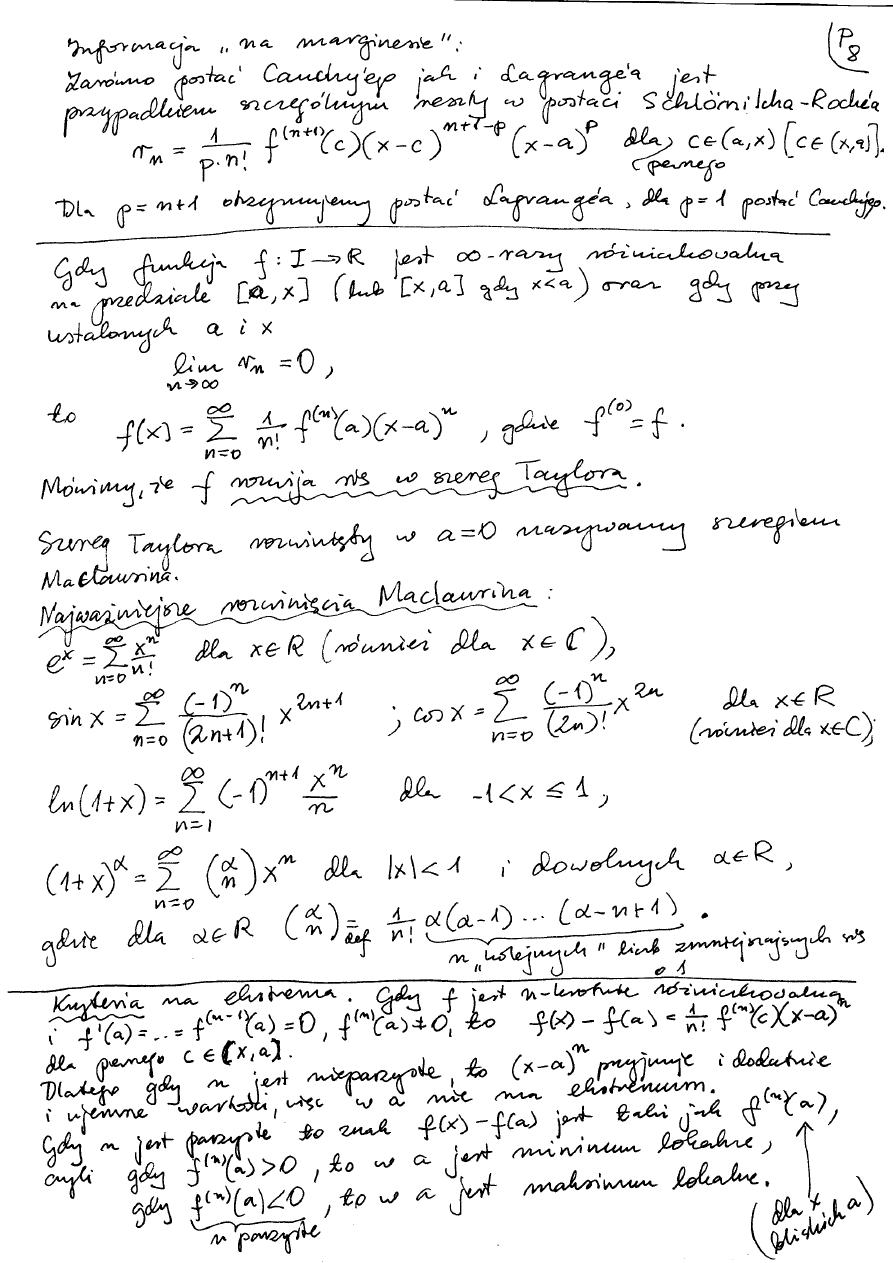 P8
Informacja „na marginesie":
Zarówno postać Cauchy'ego jak i Lagrange'a jest
przypadkiem szczególnym reszty w postaci Schlömilcha-Roché'a
r_n = \frac{1}{p \cdot n!} f^{(n+1)}(c)(x-c)^{n+1-p}(x-a)^p dla pewnego c∈(a,x) [c∈(x,a)].
Dla p=n+1 otrzymujemy postać Lagrange'a, dla p=1 postać Cauchy'ego.
Gdy funkcja f: I→R jest ∞-razy różniczkowalna
na przedziale [a,x] (lub [x,a] gdy x<a) oraz gdy przy
ustalonych a i x
\lim_{n→∞} r_n = 0,
to f(x) = \sum_{n=0}^{∞} \frac{1}{n!} f^{(n)}(a)(x-a)^n, gdzie f^{(0)} = f.
Mówimy, że f rozwija się w szereg Taylora.
Szereg Taylora rozwinięty w a=0 nazywamy szeregiem
Maclaurina.
Najważniejsze rozwinięcia Maclaurina:
e^x = \sum_{n=0}^{∞} \frac{x^n}{n!} dla x∈R (również dla x∈C),
sin x = \sum_{n=0}^{∞} \frac{(-1)^n}{(2n+1)!} x^{2n+1} ; cos x = \sum_{n=0}^{∞} \frac{(-1)^n}{(2n)!} x^{2n} dla x∈R
(również dla x∈C);
ln(1+x) = \sum_{n=1}^{∞} (-1)^{n+1} \frac{x^n}{n} dla -1<x≤1,
(1+x)^α = \sum_{n=0}^{∞} \binom{α}{n} x^n dla |x|<1 i dowolnych α∈R,
gdzie dla α∈R \binom{α}{n} =_{def} \frac{1}{n!} α(α-1)...(α-n+1).
n „kolejnych" liczb zmniejszających się
o 1
Kryteria na ekstrema. Gdy f jest n-krotnie różniczkowalna
i f'(a)=...=f^{(n-1)}(a)=0, f^{(n)}(a)≠0, to f(x)-f(a) = \frac{1}{n!} f^{(n)}(c)(x-a)^n
dla pewnego c∈[x,a].
Dlatego gdy n jest nieparzyste, to (x-a)^n przyjmuje i dodatnie
i ujemne wartości, więc w a nie ma ekstremum.
Gdy n jest parzyste to znak f(x)-f(a) jest taki jak f^{(n)}(a),
czyli gdy f^{(n)}(a)>0, to w a jest minimum lokalne,
gdy f^{(n)}(a)<0, to w a jest maksimum lokalne.
n parzyste
(dla x
bliskich a)